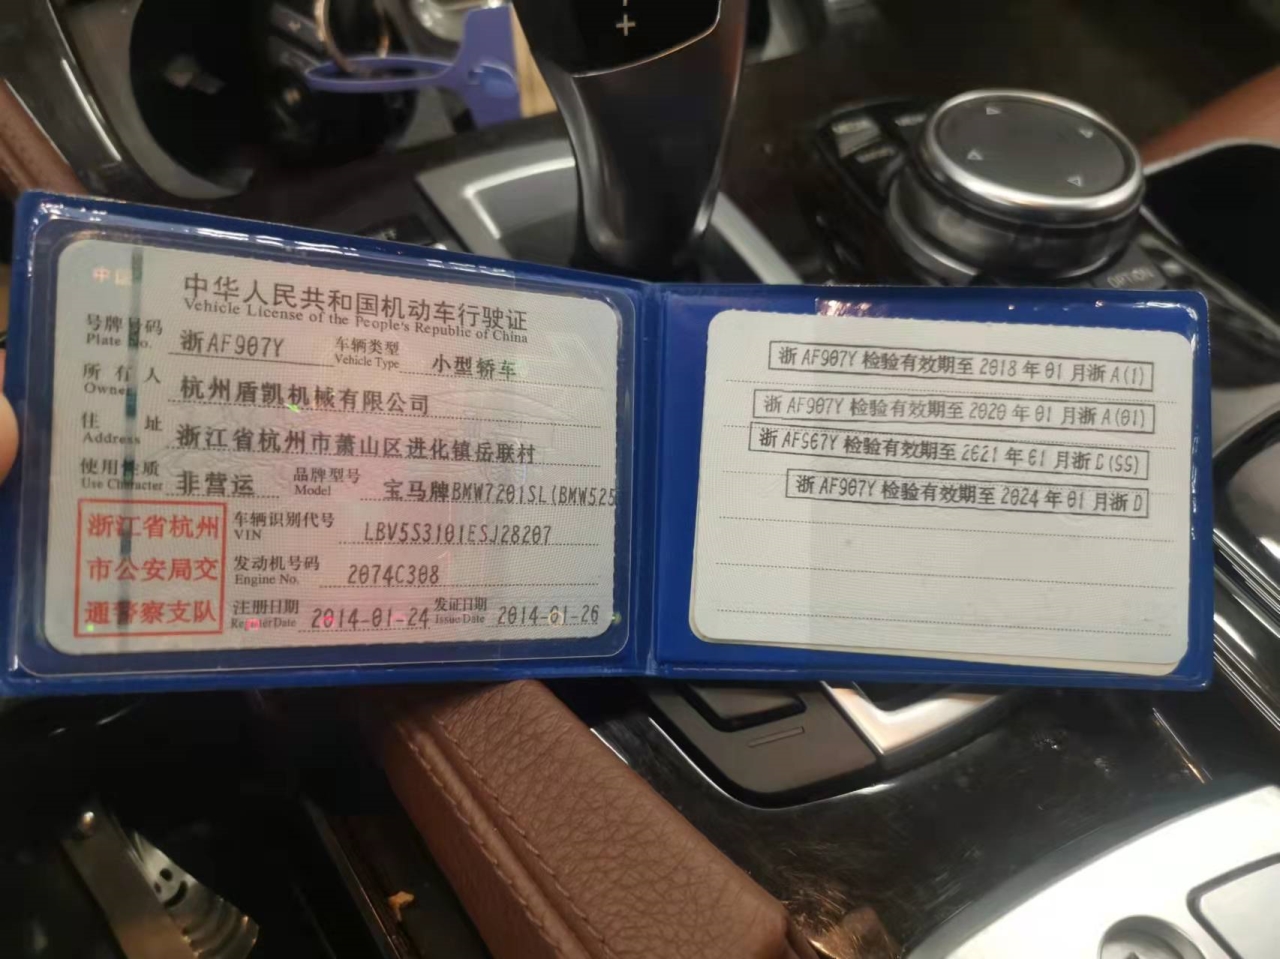 中华人民共和国机动车行驶证
Vehicle License of the People's Republic of China
号牌号码 浙AF907Y 车辆类型 小型轿车
Plate No. Vehicle Type
所有人 杭州盾凯机械有限公司
Owner
住址 浙江省杭州市萧山区进化镇岳联村
Address
使用性质 非营运 品牌型号 宝马牌BMW7201SL(BMW525
Use Character Model
浙江省杭州
市公安局交
通警察支队
车辆识别代号 LBV5S3101ESJ28207
VIN
发动机号码 2074C308
Engine No.
注册日期 2014-01-24 发证日期 2014-01-26
Register Date Issue Date
浙AF907Y 检验有效期至 2018 年 01 月浙A(1)
浙AF907Y 检验有效期至 2020 年 01 月浙A(01)
检验有效期至 2021 年 01 月浙
浙AF907Y 检验有效期至 2024 年 01 月浙D
OPTION
+